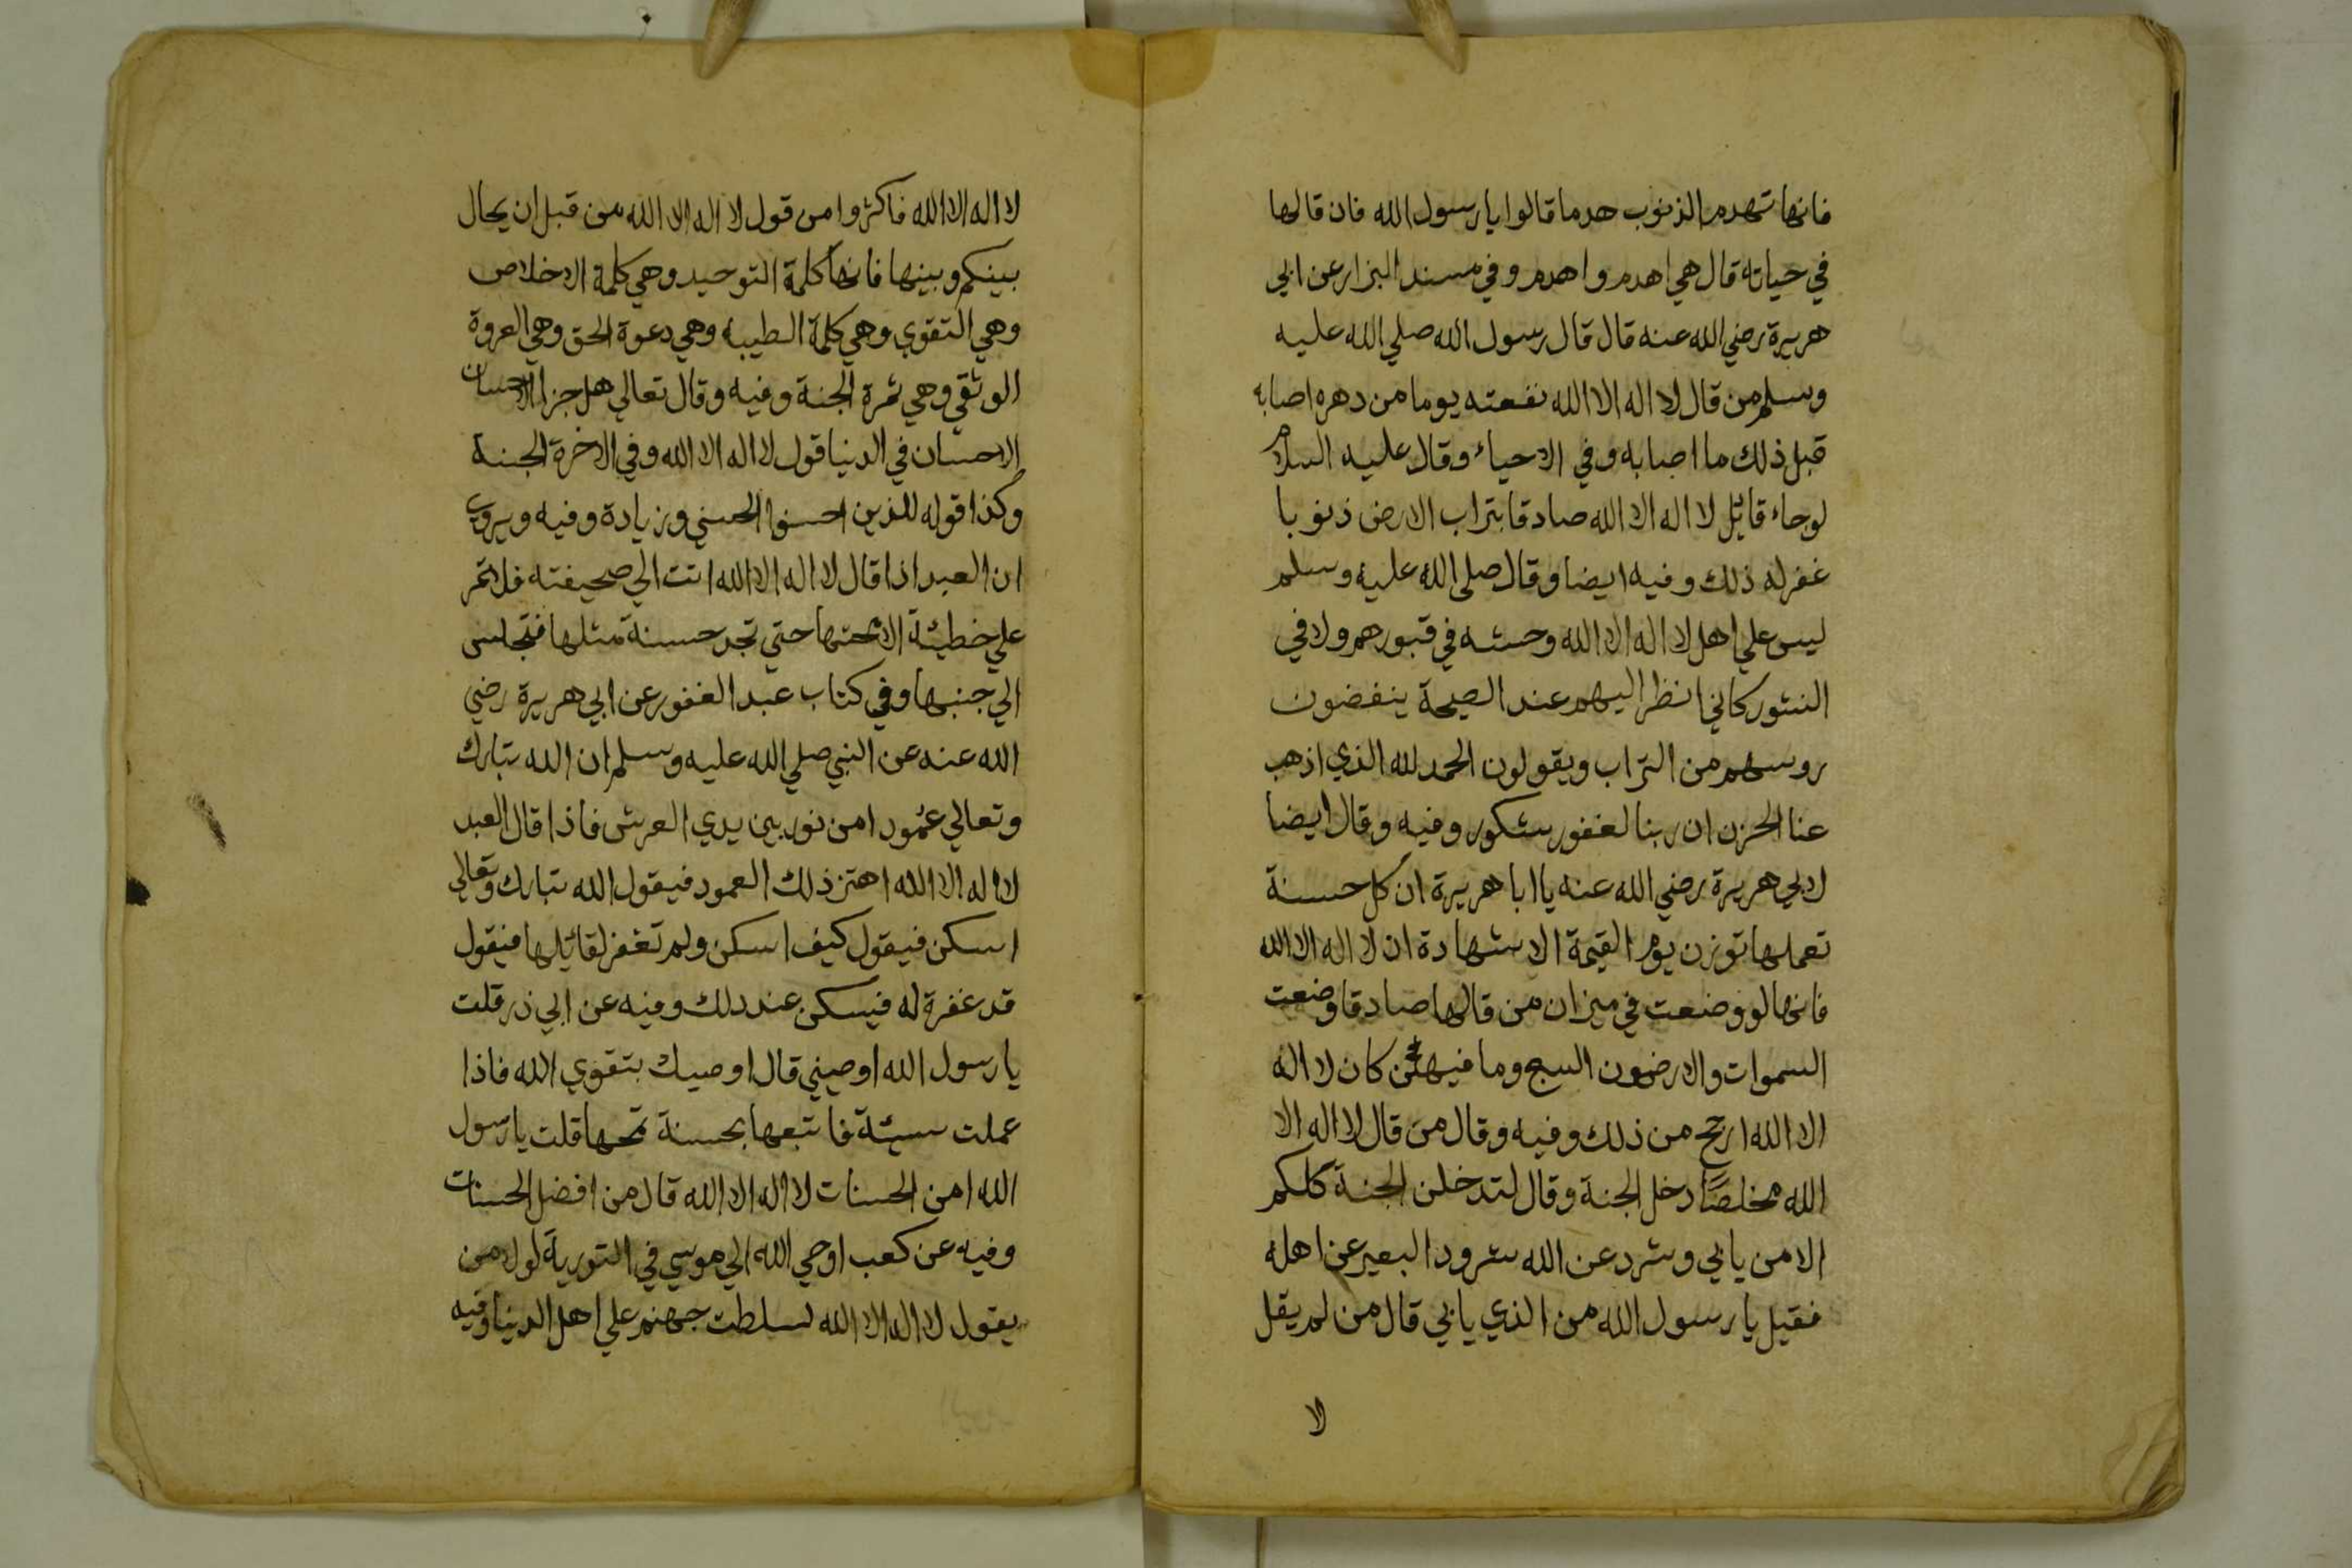 فانها تهدم الذنوب هدما قالوا يا رسول الله فان قالها
في حياته قال هي اهدم واهدم وفي مسند البزار عن ابي
هريرة رضي الله عنه قال قال رسول الله صلي الله عليه
وسلم من قال لا اله الا الله نفعته يوما من دهره اصابه
قبل ذلك ما اصابه وفي الاحياء وقال عليه السلام
لوجاء قائل لا اله الا الله صادقا بتراب الارض ذنوبا
غفر له ذلك وفيه ايضا وقال صلى الله عليه وسلم
ليس علي اهل لا اله الا الله وحشه في قبورهم ولا في
النشور كاني انظر اليهم عند الصيحة ينفضون
روسهم من التراب ويقولون الحمد لله الذي اذهب
عنا الحزن ان ربنا لغفور شكور وفيه وقال ايضا
لابي هريرة رضي الله عنه يا ابا هريرة ان كل حسنة
تعملها توزن يوم القيمة الا شهادة ان لا اله الا الله
فانها لو وضعت في ميزان من قالها صادقا وضعت
السموات والارضون السبع وما فيهن كان لا اله
الا الله ارجح من ذلك وفيه وقال من قال لا اله الا
الله مخلصًا دخل الجنة وقال لتدخلن الجنة كلكم
الا من يابي وشرد عن الله شرود البعير عن اهله
فقيل يا رسول الله من الذي يابي قال من لم يقل
لا
لا اله الا الله فاكثروا من قول لا اله الا الله من قبل ان يحال
بينكم وبينها فانها كلمة التوحيد وهي كلمة الاخلاص
وهي التقوي وهي كلمة الطيبه وهي دعوة الحق وهي العروة
الوثقي وهي ثمرة الجنة وفيه وقال تعالي هل جزا الاحسان
الاحسان في الدنيا قول لا اله الا الله وفي الاخرة الجنة
وكذا قوله للذين احسنوا الحسني وزيادة وفيه ويروي
ان العبد اذا قال لا اله الا الله اتت الي صحيفته فلا تمر
علي خطيئة الا محتها حتي تجد حسنة مثلها فتجلس
الي جنبها وفي كتاب عبد الغفور عن ابي هريرة رضي
الله عنه عن النبي صلي الله عليه وسلم ان الله تبارك
وتعالي عمودا من نور بين يدي العرش فاذا قال العبد
لا اله الا الله اهتز ذلك العمود فيقول الله تبارك وتعالي
اسكن فيقول كيف اسكن ولم تغفر لقائلها فيقول
قد غفرة له فيسكن عند دلك وفيه عن ابي ذر قلت
يا رسول الله اوصيني قال اوصيك بتقوي الله فاذا
عملت سيئة فاتبعها بحسنة تمحها قلت يا رسول
الله امن الحسنات لا اله الا الله قال من افضل الحسنات
وفيه عن كعب اوحي الله الي موسي في التورية لولا من
يقول لا اله الا الله لسلطت جهنم علي اهل الدنيا وفيه